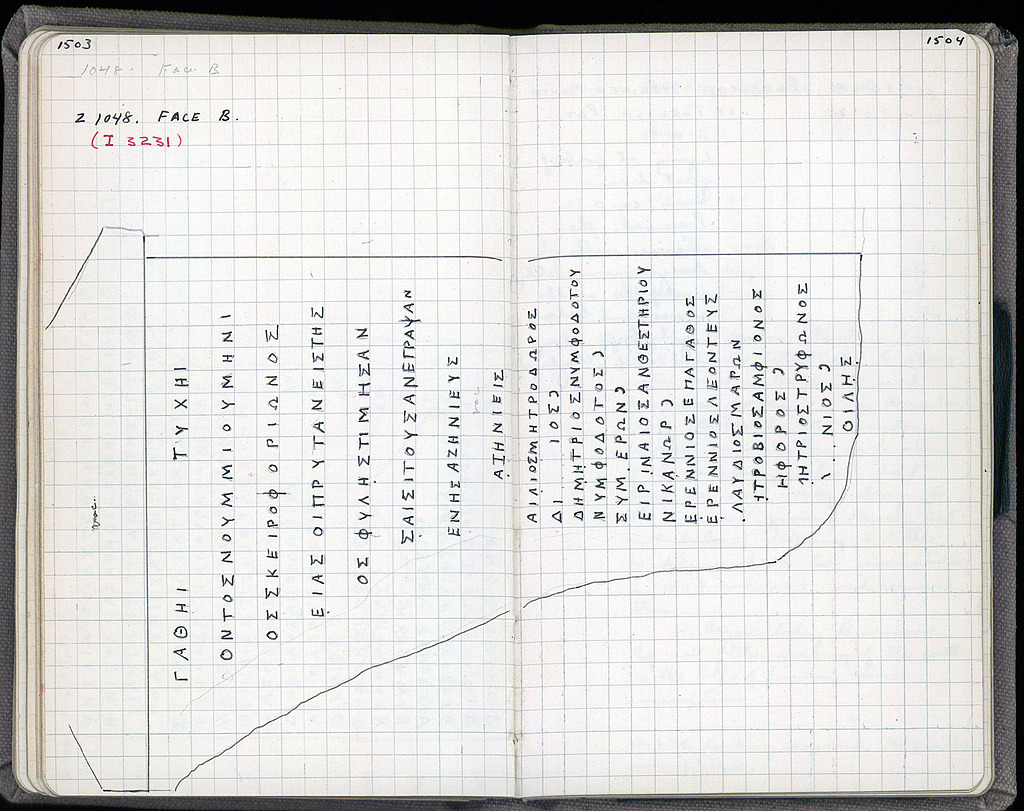 1503
1504
1048. Face B
Z 1048. FACE B.
(I 3231)
ΓΑΘΗΙ ΤΥΧΗΙ
ΟΝΤΟΣΝΟΥΜΜΙΟΥΜΗΝΙ
ΟΣΣΚΕΙΡΟΦΟΡΙΩΝΟΣ
ΕΙΑΣΟΙΠΡΥΤΑΝΕΙΣΤΗΣ
ΟΣ ΦΥΛΗΣΤΙΜΗΣΑΝ
ΣΑΙΣΙΤΟΥΣΑΝΕΓΡΑΨΑΝ
ΕΝΗΣΑΖΗΝΙΕΥΣ
ΑΖΗΝΙΕΙΣ
ΑΙΛΙΟΣΜΗΤΡΟΔΩΡΟΣ
ΔΙ ΙΟΣ)
ΔΗΜΗΤΡΙΟΣΝΥΜΦΟΔΟΤΟΥ
ΝΥΜΦΟΔΟΤΟΣ)
ΣΥΜ.ΕΡΩΝ)
ΕΙΡΙΝΑΙΟΣΑΝΘΕΣΤΗΡΙΟΥ
ΝΙΚΑΝΩΡ)
ΕΡΕΝΝΙΟΣΕΠΑΓΑΘΟΣ
ΕΡΕΝΝΙΟΣΛΕΟΝΤΕΥΣ
.ΛΑΥΔΙΟΣΜΑΡΩΝ
ΗΤΡΟΒΙΟΣΑΜΦΙΟΝΟΣ
ΗΦΟΡΟΣ)
ΜΗΤΡΙΟΣΤΡΥΦΩΝΟΣ
\ . . ΝΙΟΣ)
ΟΙΛΗΣ